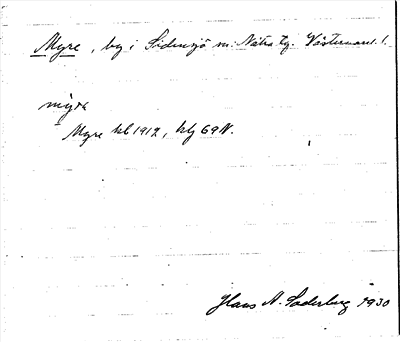 Myre, by i Sidensjö sn: Nätra tg. Västernorrl. l.
myra
Myre kbl 1912, hlj 69 N.
Hans A. Söderberg 1930